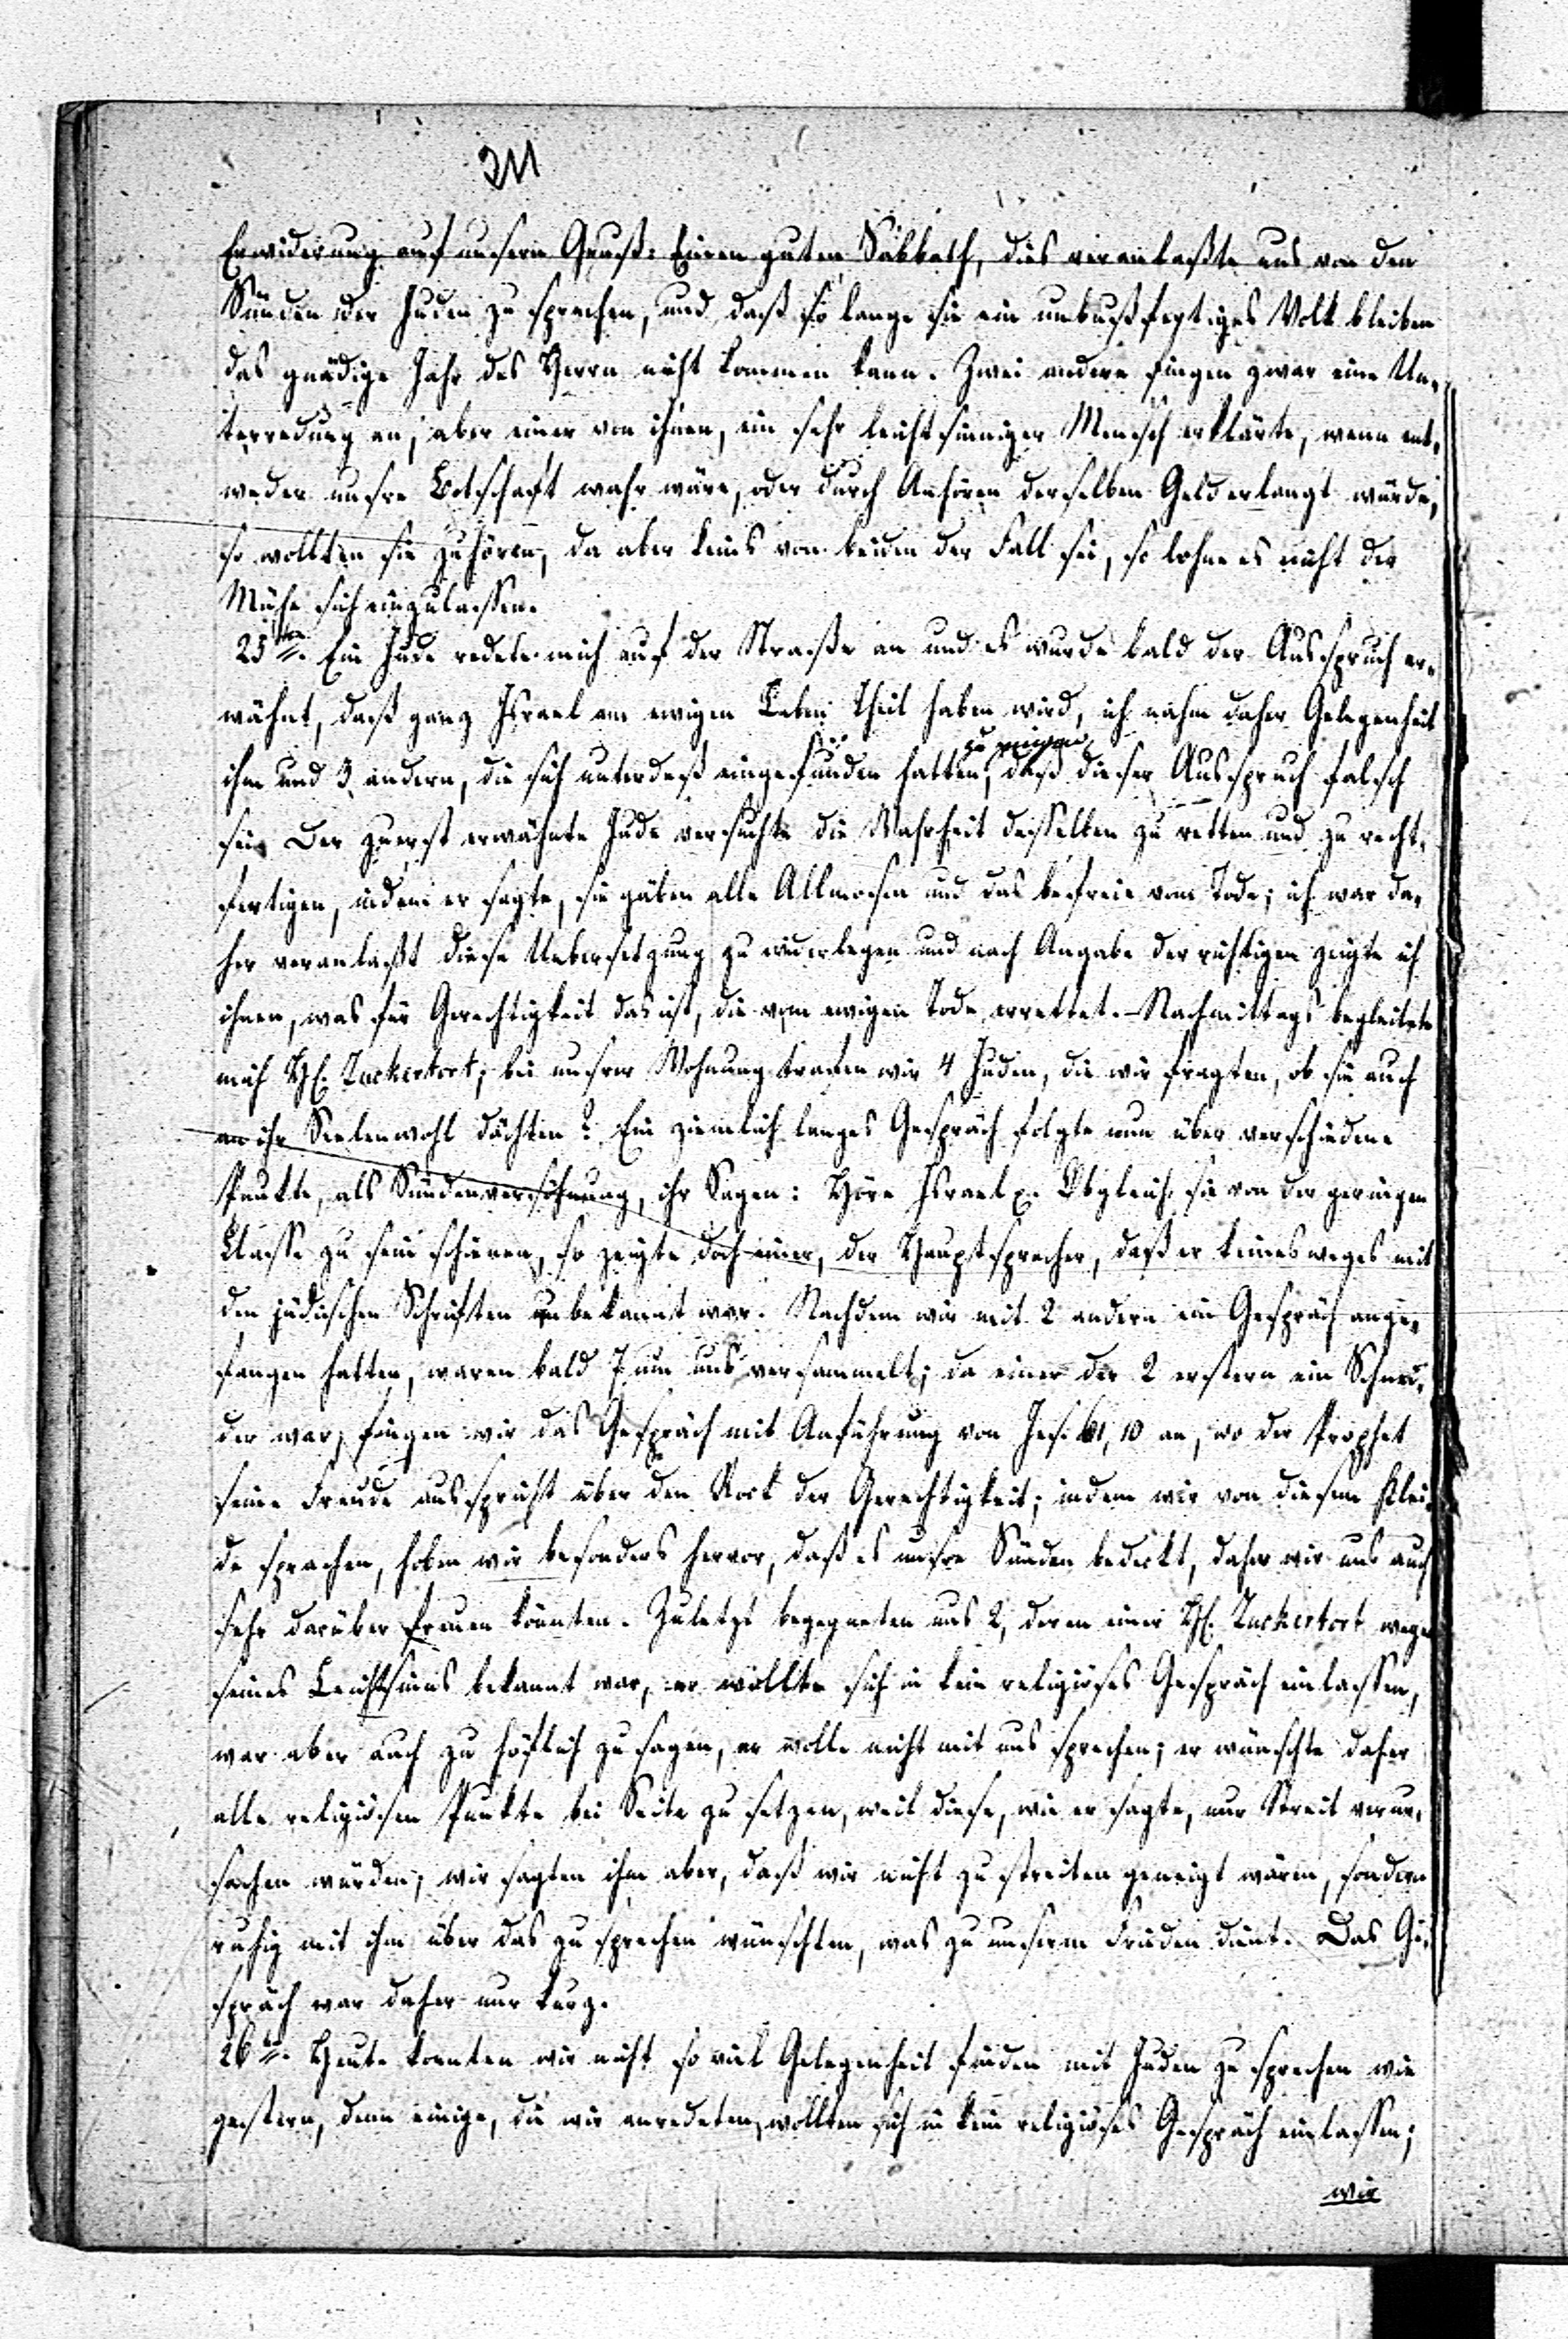 211
Erwiderung auf unsern Gruß: Einen guten Sabbath, dies veranlaßte uns von den
Sünden der Juden zu sprechen, und daß so lange sie ein unbußfertiges Volk bleiben
das gnädige Jahr des Herrn nicht kommen kann. Zwei andere fingen zwar eine Un-
terredung an, aber einer von ihnen, ein sehr leichtsinniger Mensch erklärte, wenn ent-
weder unsre Botschaft wahr wäre, oder durch Anhören derselben Geld erlangt würde,
so wollten sie zuhören, da aber keins von beiden der Fall sei, so lohne es nicht der
Mühe sich einzulassen.
25ten. Ein Jude redete mich auf der Straße an und es wurde bald der Ausspruch er-
wähnt, daß ganz Israel am ewigen Leben Theil haben wird, ich nahm daher Gelegenheit
ihm und 3 andern, die sich unterdeß eingefunden hatten, zu zeigen, daß dieser Ausspruch falsch
sei. Der zuerst erwähnte Jude versuchte die Wahrheit desselben zu retten und zu recht-
fertigen, indem er sagte, sie gäben alle Allmosen und das befreie vom Tode; ich war da-
her veranlaßt diese Uebersetzung zu widerlegen und nach Angabe der richtigen zeigte ich
ihnen, was für Gerechtigkeit das ist, die vom ewigen Tode errettet. Nachmittags begleitete
mich H. Zuckertort; bei unsrer Wohnung trafen wir 4 Juden, die wir fragten, ob sie auch
an ihr Seelenwohl dächten? Ein ziemlich langes Gespräch folgte nun über verschiedene
Punkte, als Sündenversöhnung, ihr Sagen: Höre Israel x. Obgleich sie von der geringen
Classe zu sein schienen, so zeigte doch einer, der Hauptsprecher, daß er keinesweges mit
den jüdischen Schriften unbekannt war. Nachdem wir mit 2 andern ein Gespräch ange-
fangen hatten, waren bald 7 um uns versammelt; da einer der 2 erstern ein Schnei-
der war, fingen wir das Gespräch mit Anführung von Jes. 61, 10 an, wo der Prophet
seine Freude ausspricht über den Rock der Gerechtigkeit; indem wir von diesem Klei-
de sprachen, hoben wir besonders hervor, daß es unsre Sünden bedeckt, daher wir uns auch
sehr darüber freuen könnten. Zuletzt begegneten uns 2, deren einer H. Zuckertort wegen
seines Leichtsinns bekannt war, er wollte sich in kein religiöses Gespräch einlassen,
war aber auch zu höflich zu sagen, er wolle nicht mit uns sprechen; er wünschte daher
alle religiösen Punkte bei Seite zu setzen, weil diese, wie er sagte, nur Streit verur-
sachen würden; wir sagten ihm aber, daß wir nicht zu streiten geneigt wären, sondern
ruhig mit ihm über das zu sprechen wünschten, was zu unserm Frieden dient. Das Ge-
spräch war daher nur kurz.
26ten. Heute konnten wir nicht so viel Gelegenheit finden mit Juden zu sprechen wie
gestern, denn einige, die wir anredeten, wollten sich in kein religiöses Gespräch einlassen;
wir